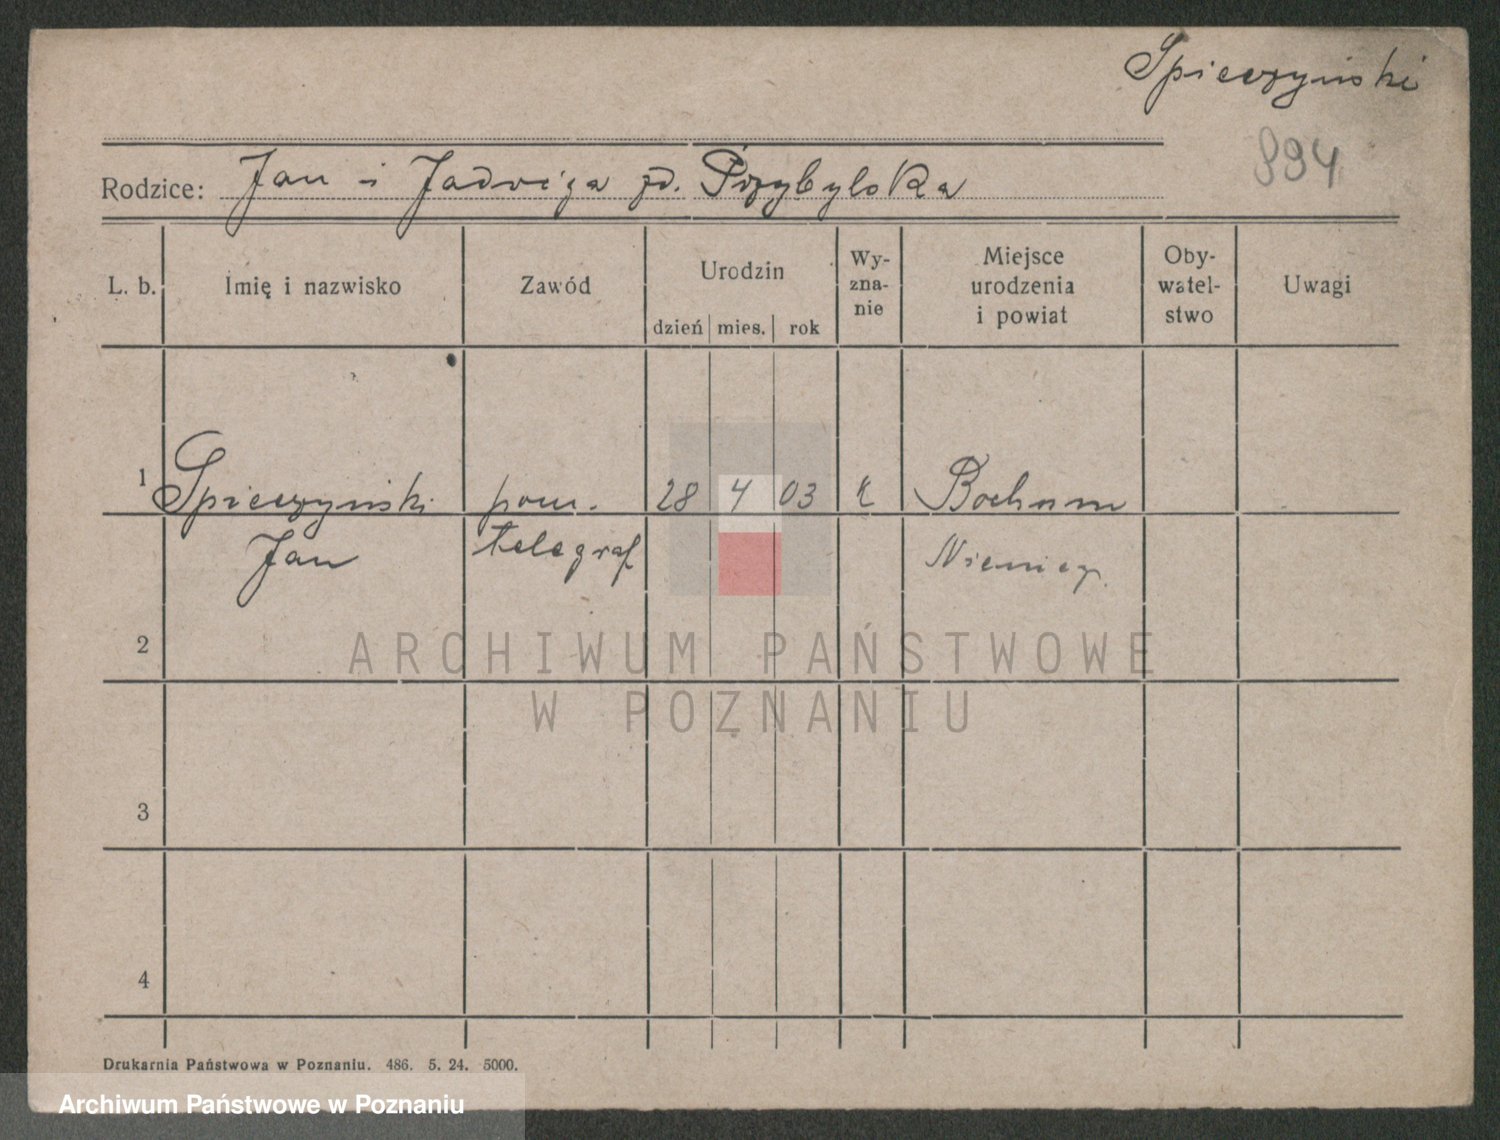 Spieczyński
994
Rodzice: Jan i Jadwiga zd. Przybylska
L. b. Imię i nazwisko Zawód Urodzin dzień mies. rok Wy-zna-nie Miejsce urodzenia i powiat Oby-watel-stwo Uwagi
1 Spieczyński pom. 28 4 03 k Bochum
Jan telegraf. Niemcy.
2
ARCHIWUM PAŃSTWOWE
W POZNANIU
3
4
Drukarnia Państwowa w Poznaniu. 486. 5. 24. 5000.
Archiwum Państwowe w Poznaniu